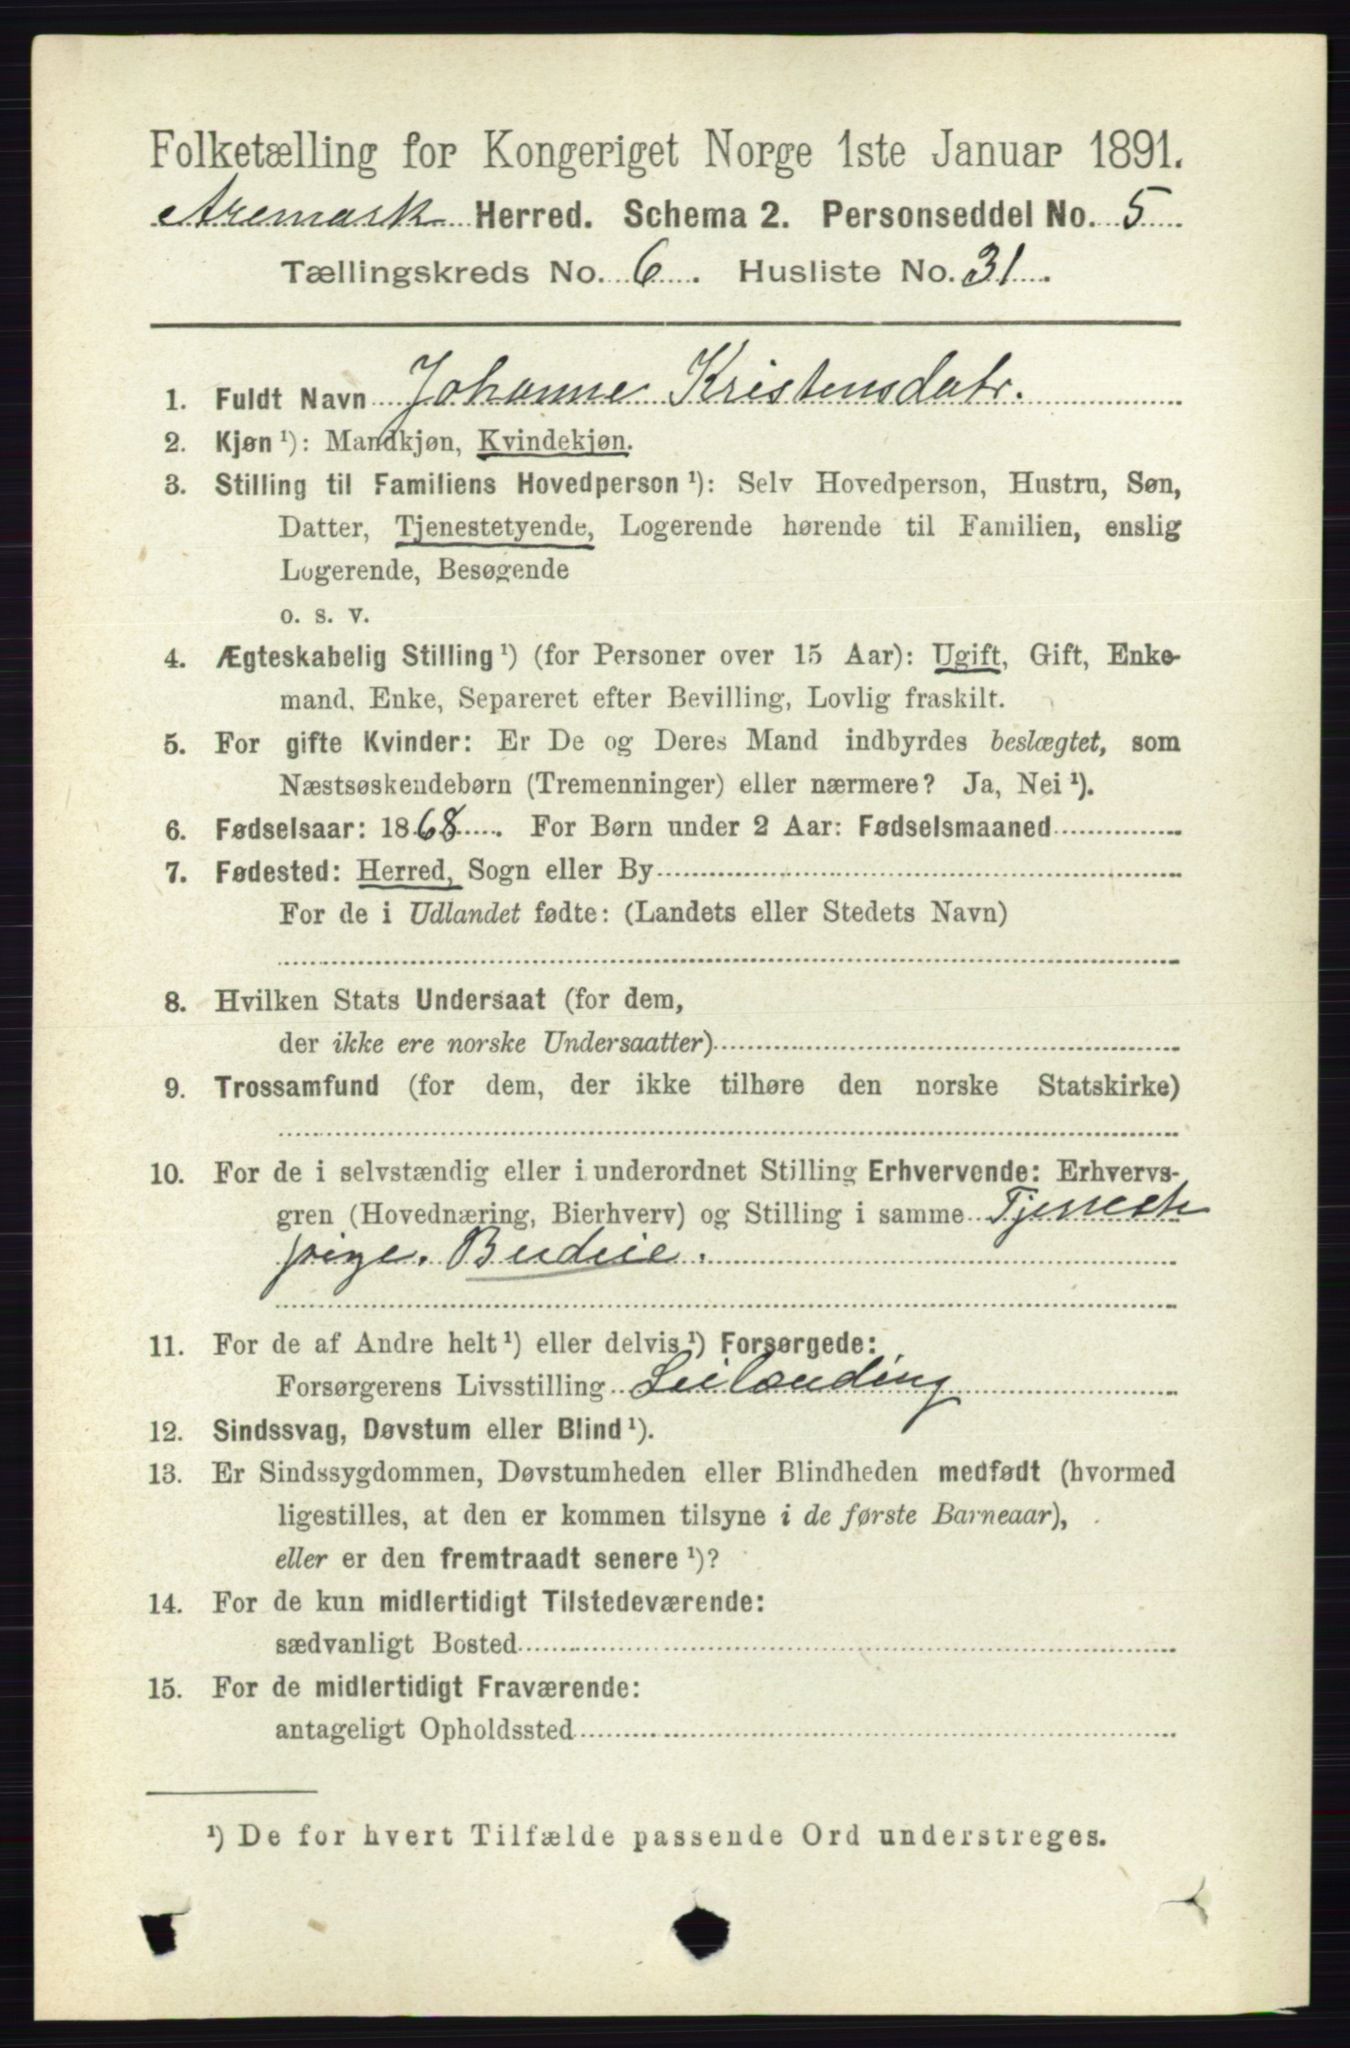 Folketælling for Kongeriget Norge 1ste Januar 1891.
Aremark Herred. Schema 2. Personseddel No. 5
Tællingskreds No. 6. Husliste No. 31.
1. Fuldt Navn Johanne Kristensdatr.
2. Kjøn ¹): Mandkjøn, Kvindekjøn.
3. Stilling til Familiens Hovedperson ¹): Selv Hovedperson, Hustru, Søn,
Datter, Tjenestetyende, Logerende hørende til Familien, enslig
Logerende, Besøgende
o. s. v.
4. Ægteskabelig Stilling ¹) (for Personer over 15 Aar): Ugift, Gift, Enke-
mand, Enke, Separeret efter Bevilling, Lovlig fraskilt.
5. For gifte Kvinder: Er De og Deres Mand indbyrdes beslægtet, som
Næstsøskendebørn (Tremenninger) eller nærmere? Ja, Nei ¹).
6. Fødselsaar: 1868. For Børn under 2 Aar: Fødselsmaaned
7. Fødested: Herred, Sogn eller By
For de i Udlandet fødte: (Landets eller Stedets Navn)
8. Hvilken Stats Undersaat (for dem,
der ikke ere norske Undersaatter)
9. Trossamfund (for dem, der ikke tilhøre den norske Statskirke)
10. For de i selvstændig eller i underordnet Stilling Erhvervende: Erhvervs-
gren (Hovednæring, Bierhverv) og Stilling i samme Tjeneste
pige. Budeie.
11. For de af Andre helt ¹) eller delvis ¹) Forsørgede:
Forsørgerens Livsstilling Leilænding
12. Sindssvag, Døvstum eller Blind ¹).
13. Er Sindssygdommen, Døvstumheden eller Blindheden medfødt (hvormed
ligestilles, at den er kommen tilsyne i de første Barneaar),
eller er den fremtraadt senere ¹)?
14. For de kun midlertidigt Tilstedeværende:
sædvanligt Bosted
15. For de midlertidigt Fraværende:
antageligt Opholdssted
¹) De for hvert Tilfælde passende Ord understreges.